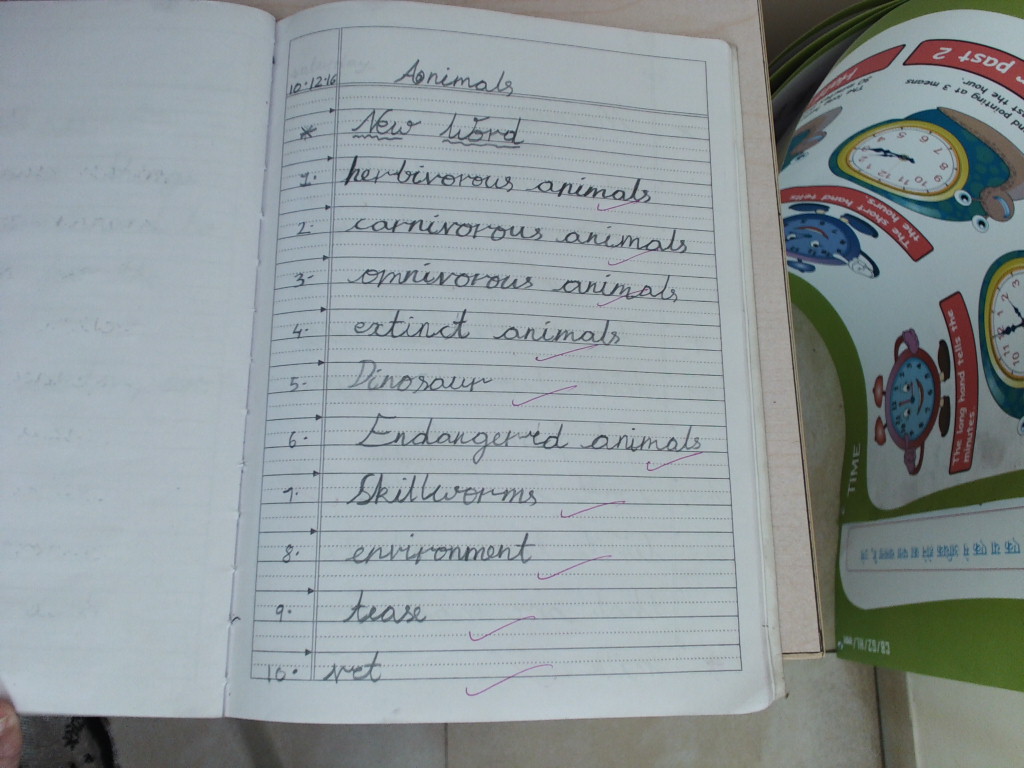 10.12.16 Aonimals
* New Word
1. herbivorous animals
2. carnivorous animals
3. omnivorous animals
4. extinct animals
5. Dinosaur
6. Endangered animals
7. Skillworms
8. environment
9. tease
10. vet
past 2
and pointing at 3 means
past the hour.
The short hand tells
the hours.
The long hand tells the
minutes.
TIME